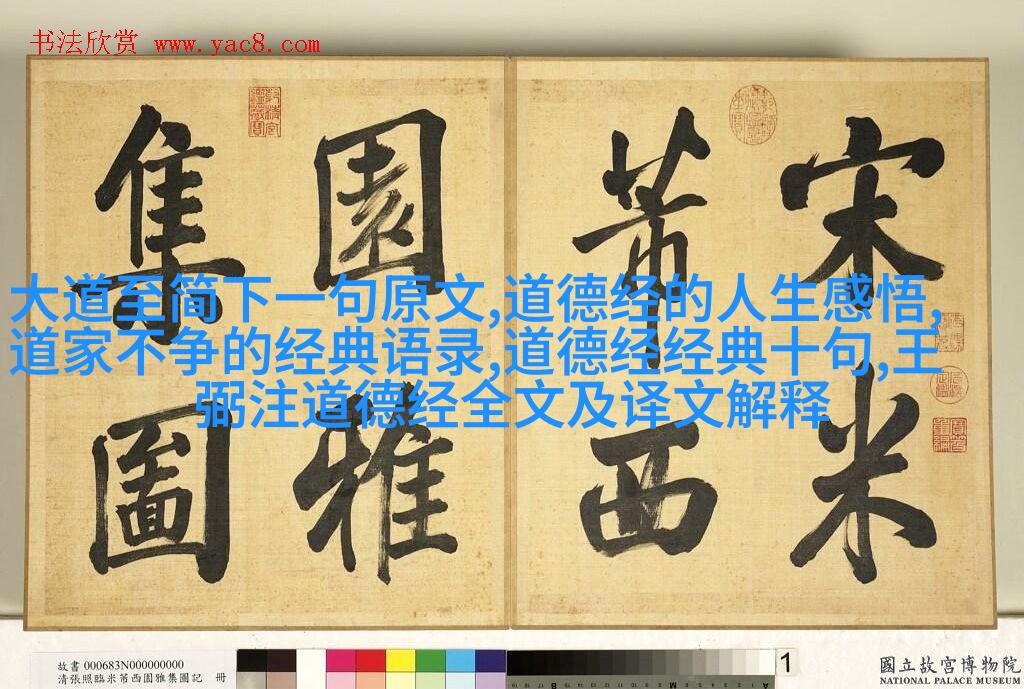 书法欣赏 www.yac8.com
宋米
芾西
園雅
集圖
大道至简下一句原文,道德经的人生感悟,
道家不争的经典语录,道德经经典十句,王
弼注道德经全文及译文解释
故書 000683N000000000
清張照臨米芾西園雅集圖記 冊
1
國立故宮博物院
NATIONAL PALACE MUSEUM